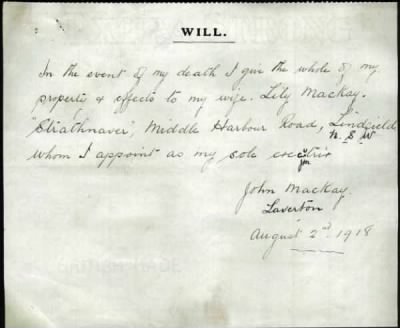 WILL.
In the event of my death I give the whole of my
property & effects to my wife. Lily Mackay.
"Strathnaver", Middle Harbour Road, Lindfield
N S W
whom I appoint as my sole
jm
John Mackay.
Laverton
August 2nd. 1918